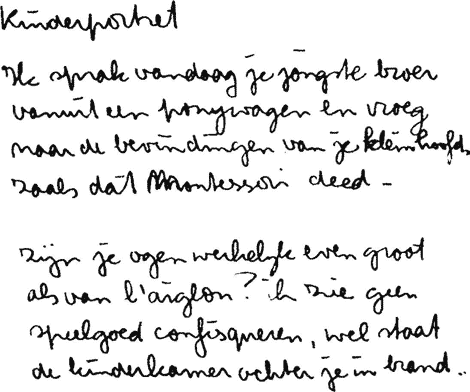 Kinderportret
Ik sprak vandaag je jongste broer
vanuit een ponywagen en vroeg
naar de bevindingen van je kleinhoofd,
zoals dat Montessori deed –
zijn je ogen werkelijk even groot
als van l'aiglon? ik zie geen
speelgoed confisqueren, wel staat
de kinderkamer achter je in brand..